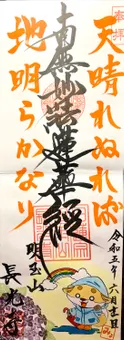 奉拝
天晴れぬれば
地明らかなり
南無妙法蓮華経
令和五年六月吉日
明玉山
長光寺